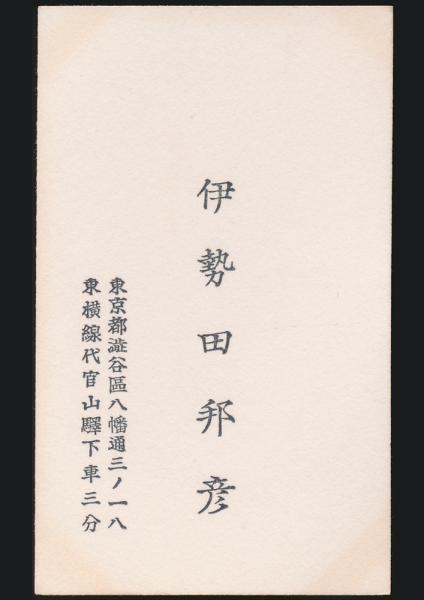 伊勢田邦彦
東京都澁谷區八幡通三ノ一八
東横線代官山驛下車三分